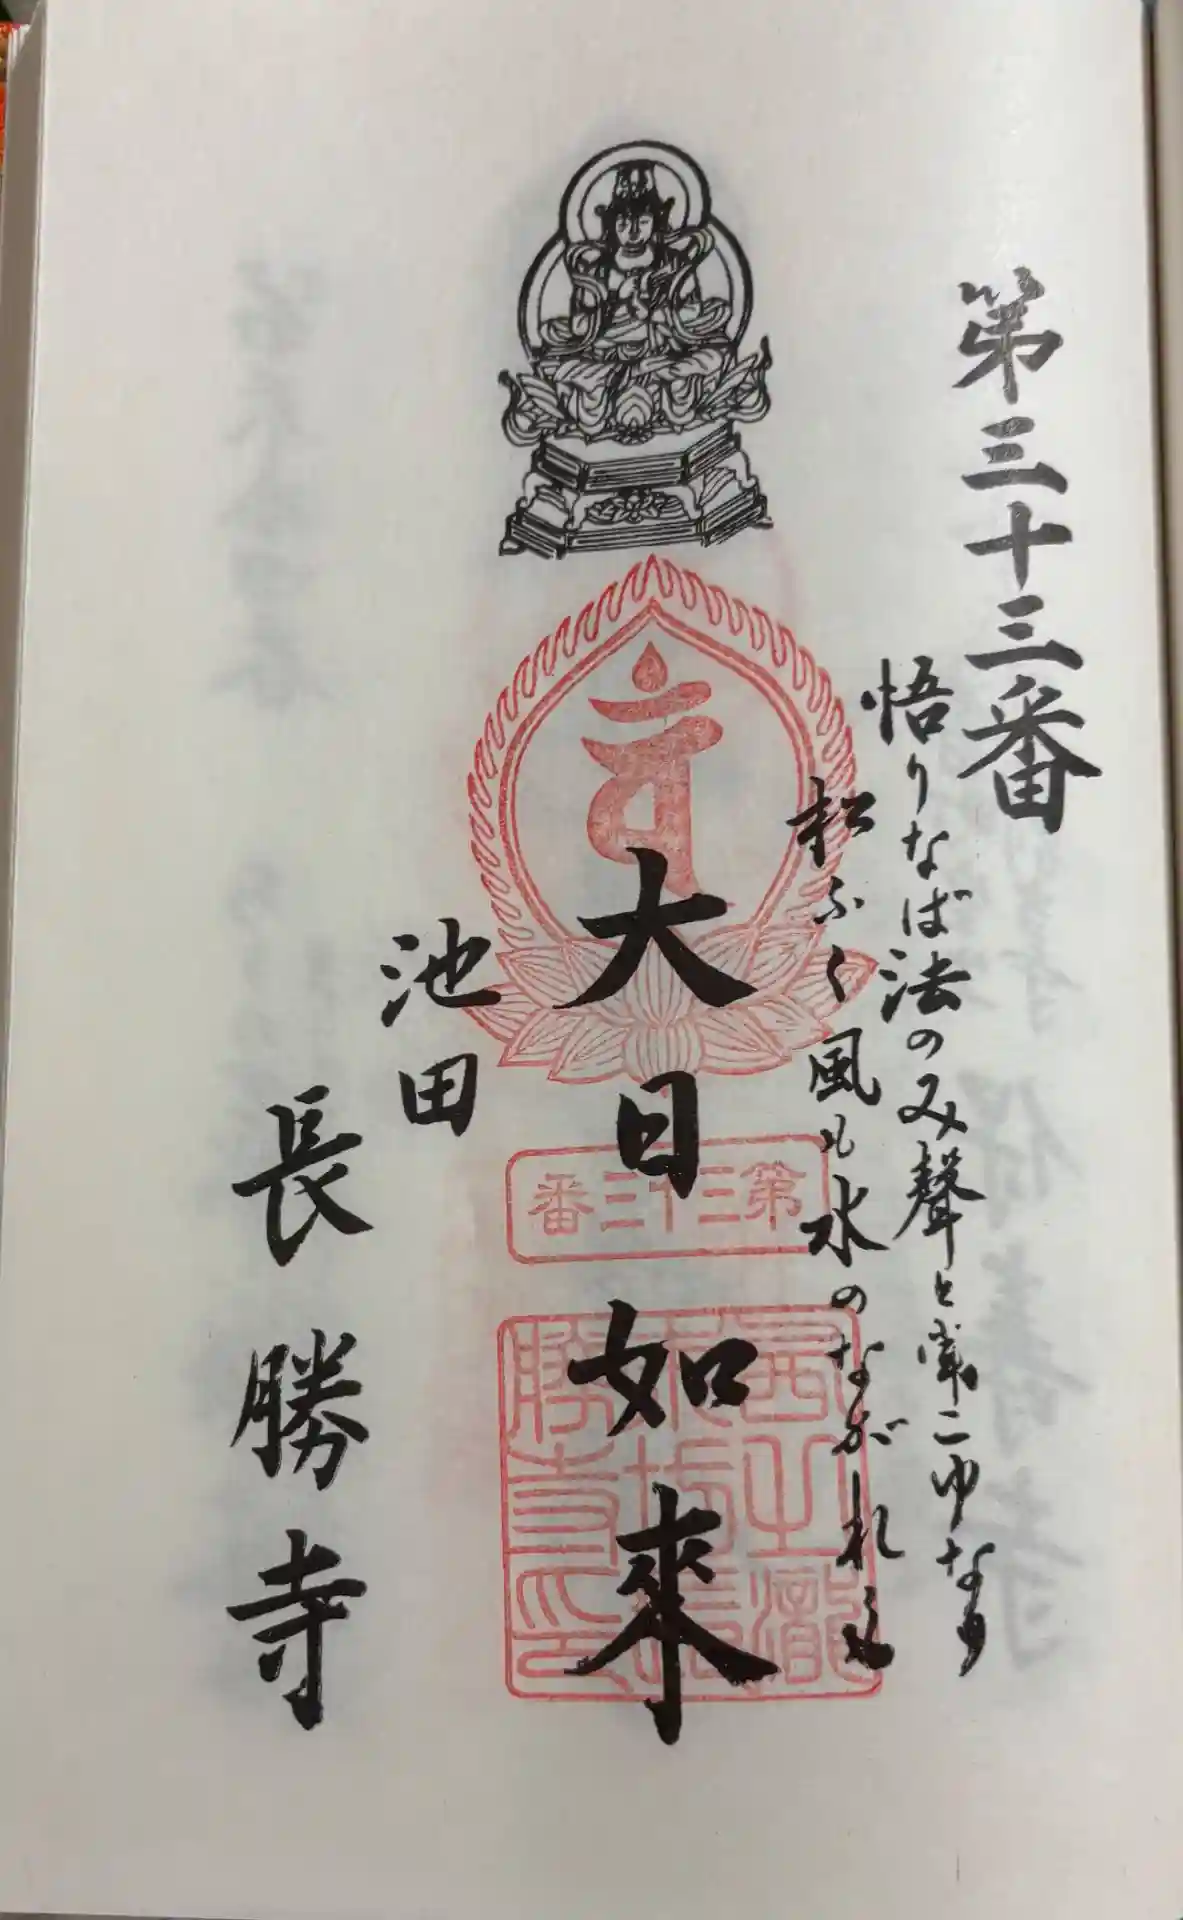 第三十三番
悟りなば法のみ聲と常こゆなり
松ふく風も水のながれも
大日如來
第三十三番
池田
長勝寺